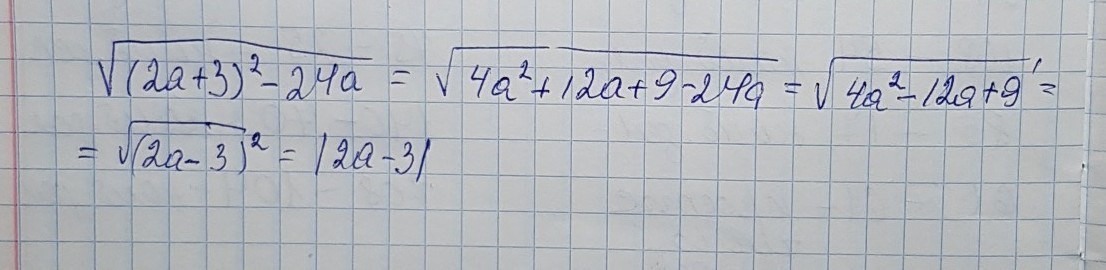 √(2a+3)² - 24a = √4a² + 12a + 9 - 24a = √4a² - 12a + 9 =
= √(2a - 3)² = |2a - 3|